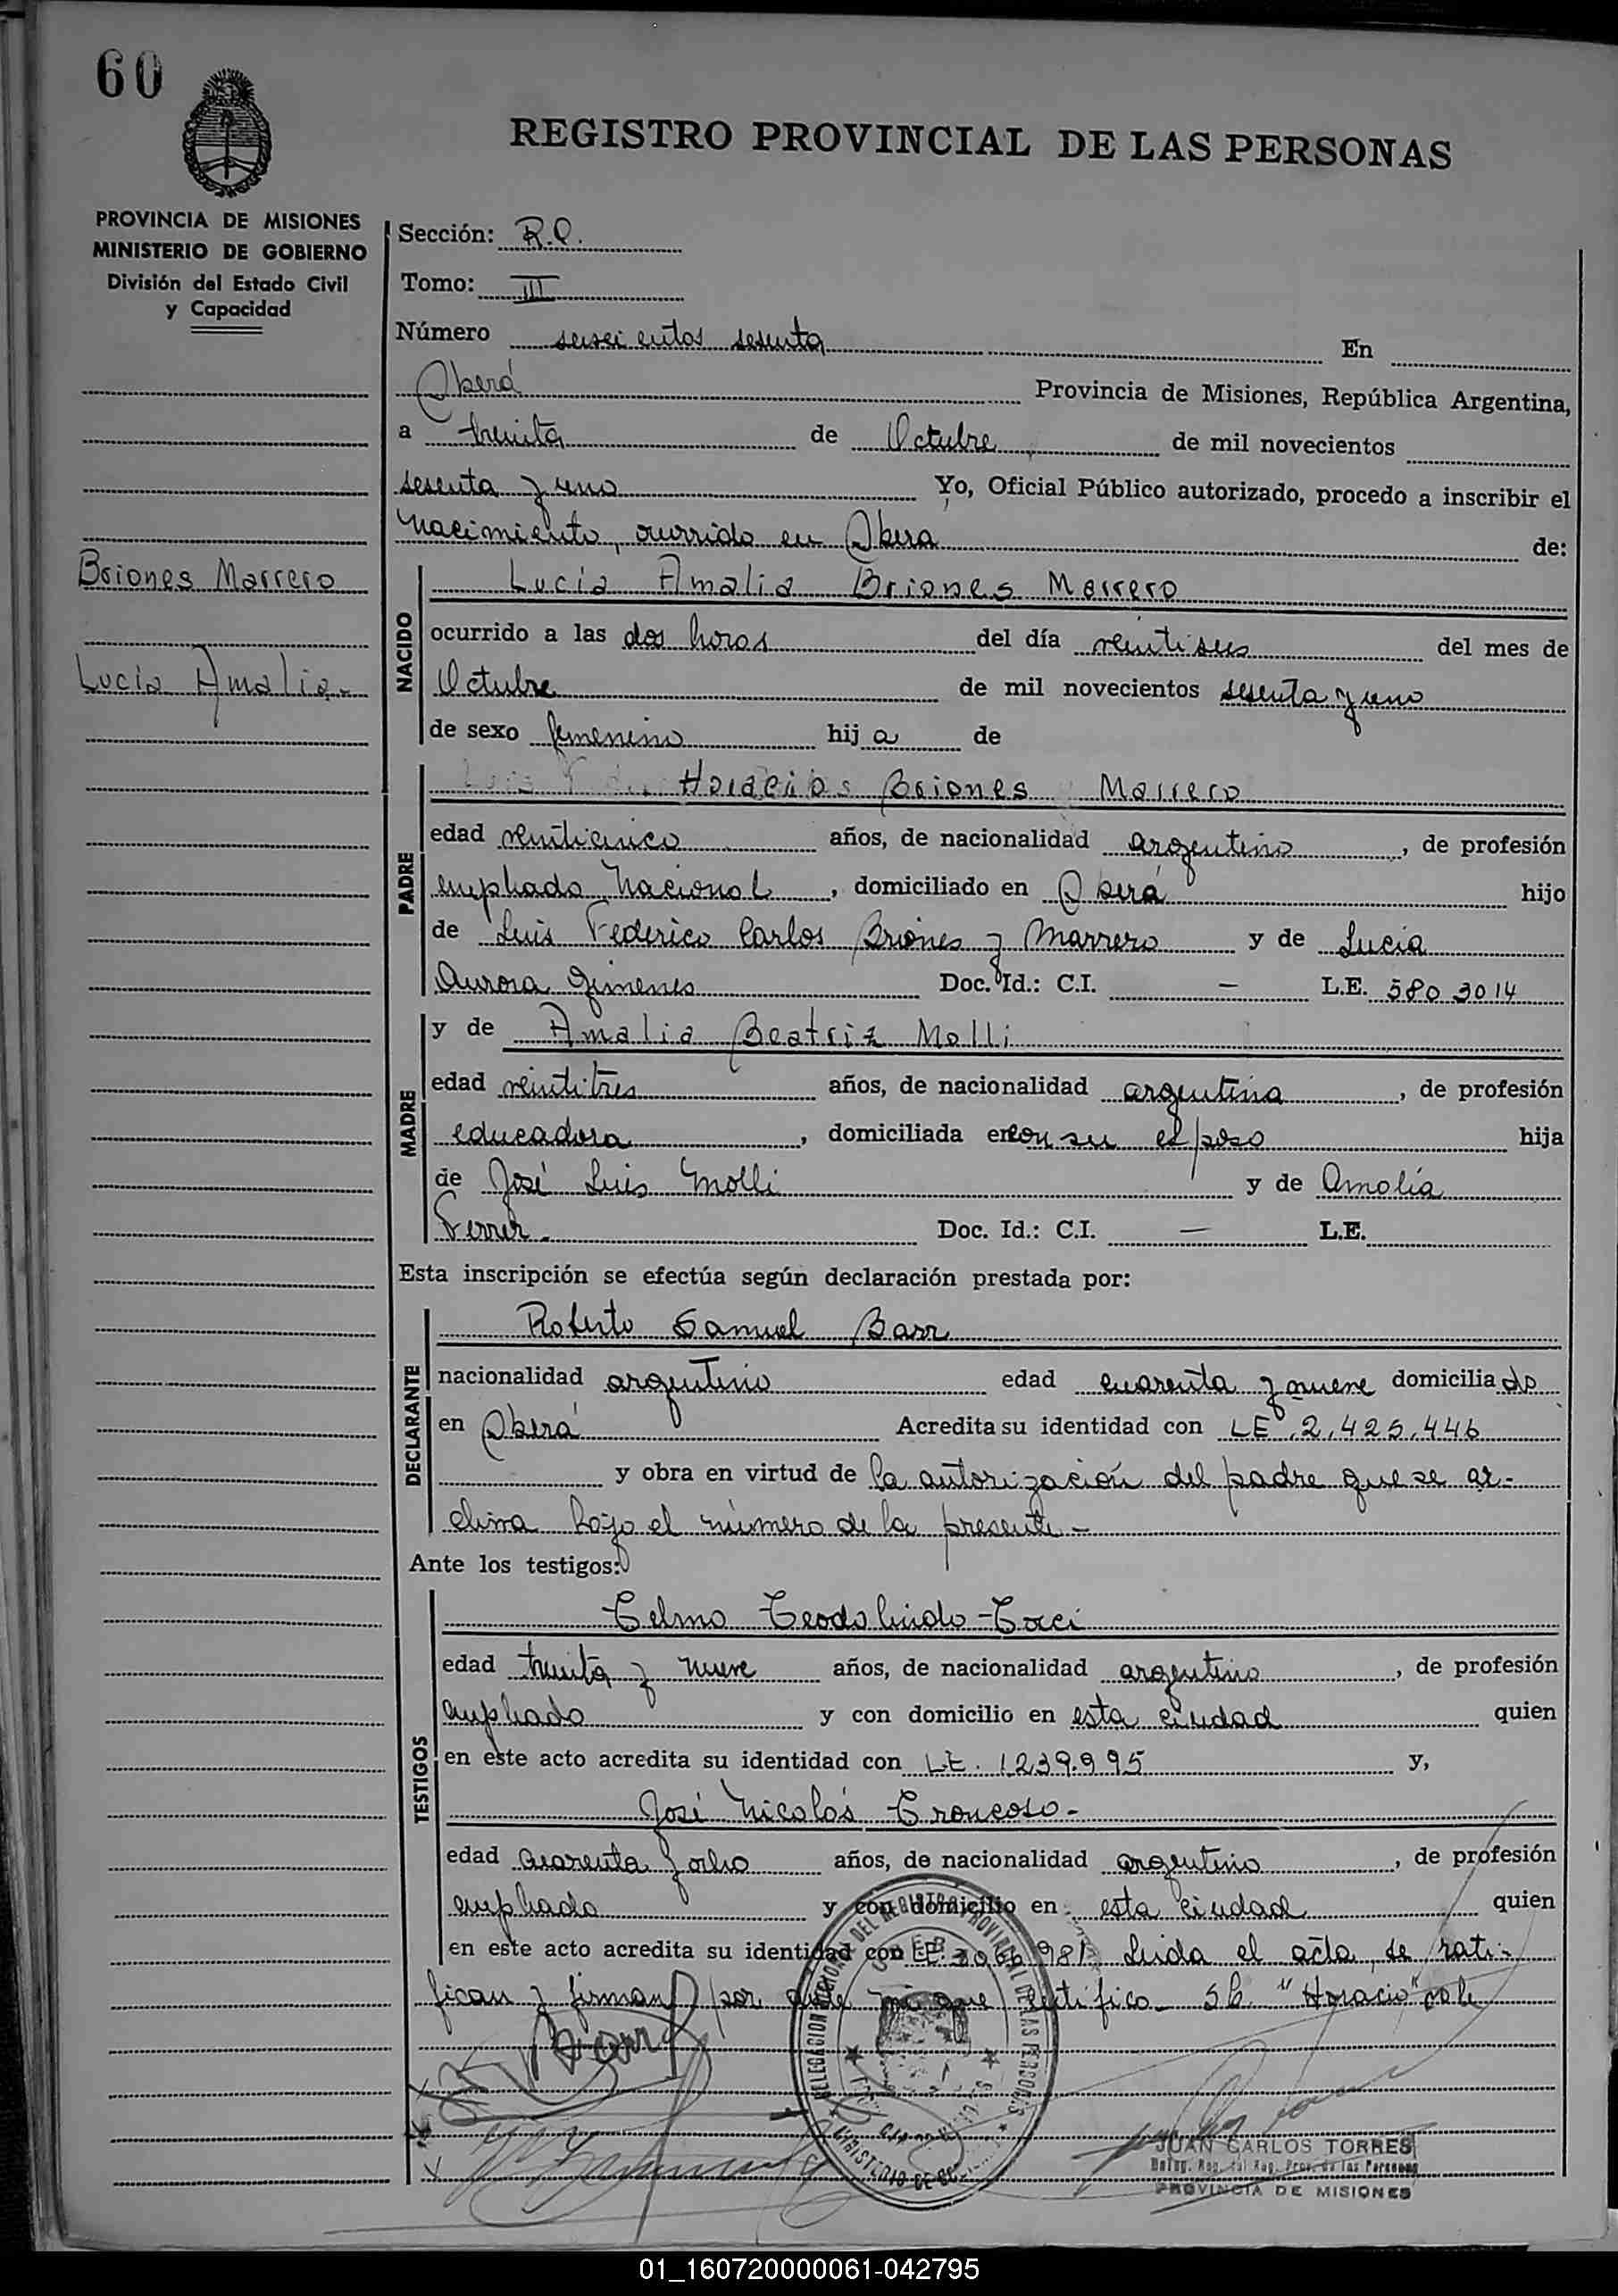 60
REGISTRO PROVINCIAL DE LAS PERSONAS
PROVINCIA DE MISIONES
MINISTERIO DE GOBIERNO
División del Estado Civil
y Capacidad
Briones Marrero
Lucía Amalia.-
Sección: R.Q.
Tomo: III
Número seiscientos sesenta En
Oberá Provincia de Misiones, República Argentina,
a treinta de Octubre de mil novecientos
sesenta y uno Yo, Oficial Público autorizado, procedo a inscribir el
nacimiento, ocurrido en Oberá de:
NACIDO
Lucía Amalia Briones Marrero
ocurrido a las dos horas del día veintiseis del mes de
Octubre de mil novecientos sesenta y uno
de sexo femenino hija de
PADRE
Horacio Briones Marrero
edad veinticinco años, de nacionalidad argentino, de profesión
empleado Nacional, domiciliado en Oberá hijo
de Luis Federico Carlos Briones y Marrero y de Lucía
Aurora Gimenes Doc. Id.: C.I. — L.E. 5803014
MADRE
y de Amalia Beatriz Molli
edad veintitres años, de nacionalidad argentina, de profesión
educadora, domiciliada en con su esposo hija
de José Luis Molli y de Amalia
Ferrer. Doc. Id.: C.I. — L.E.
Esta inscripción se efectúa según declaración prestada por:
DECLARANTE
Roberto Samuel Barr
nacionalidad argentino edad cuarenta y nueve domiciliado
en Oberá Acredita su identidad con LE.2.425.446
y obra en virtud de la autorización del padre que se ar-
chiva bajo el número de la presente-
Ante los testigos:
TESTIGOS
Telmo Teodolindo Tocci
edad treinta y nueve años, de nacionalidad argentino, de profesión
empleado y con domicilio en esta ciudad quien
en este acto acredita su identidad con L.E. 1239.995 y,
José Nicolás Troncoso-
edad cuarenta y ocho años, de nacionalidad argentino, de profesión
empleado y con domicilio en esta ciudad quien
en este acto acredita su identidad con LE. 3069981 Leida el acta, se rati-
fican y firman por ante mi que certifico- Sb. "Horacio" vale
Barr
JUAN CARLOS TORRES
Deleg. Reg. del Reg. Prov. de las Personas
PROVINCIA DE MISIONES
01_160720000061-042795